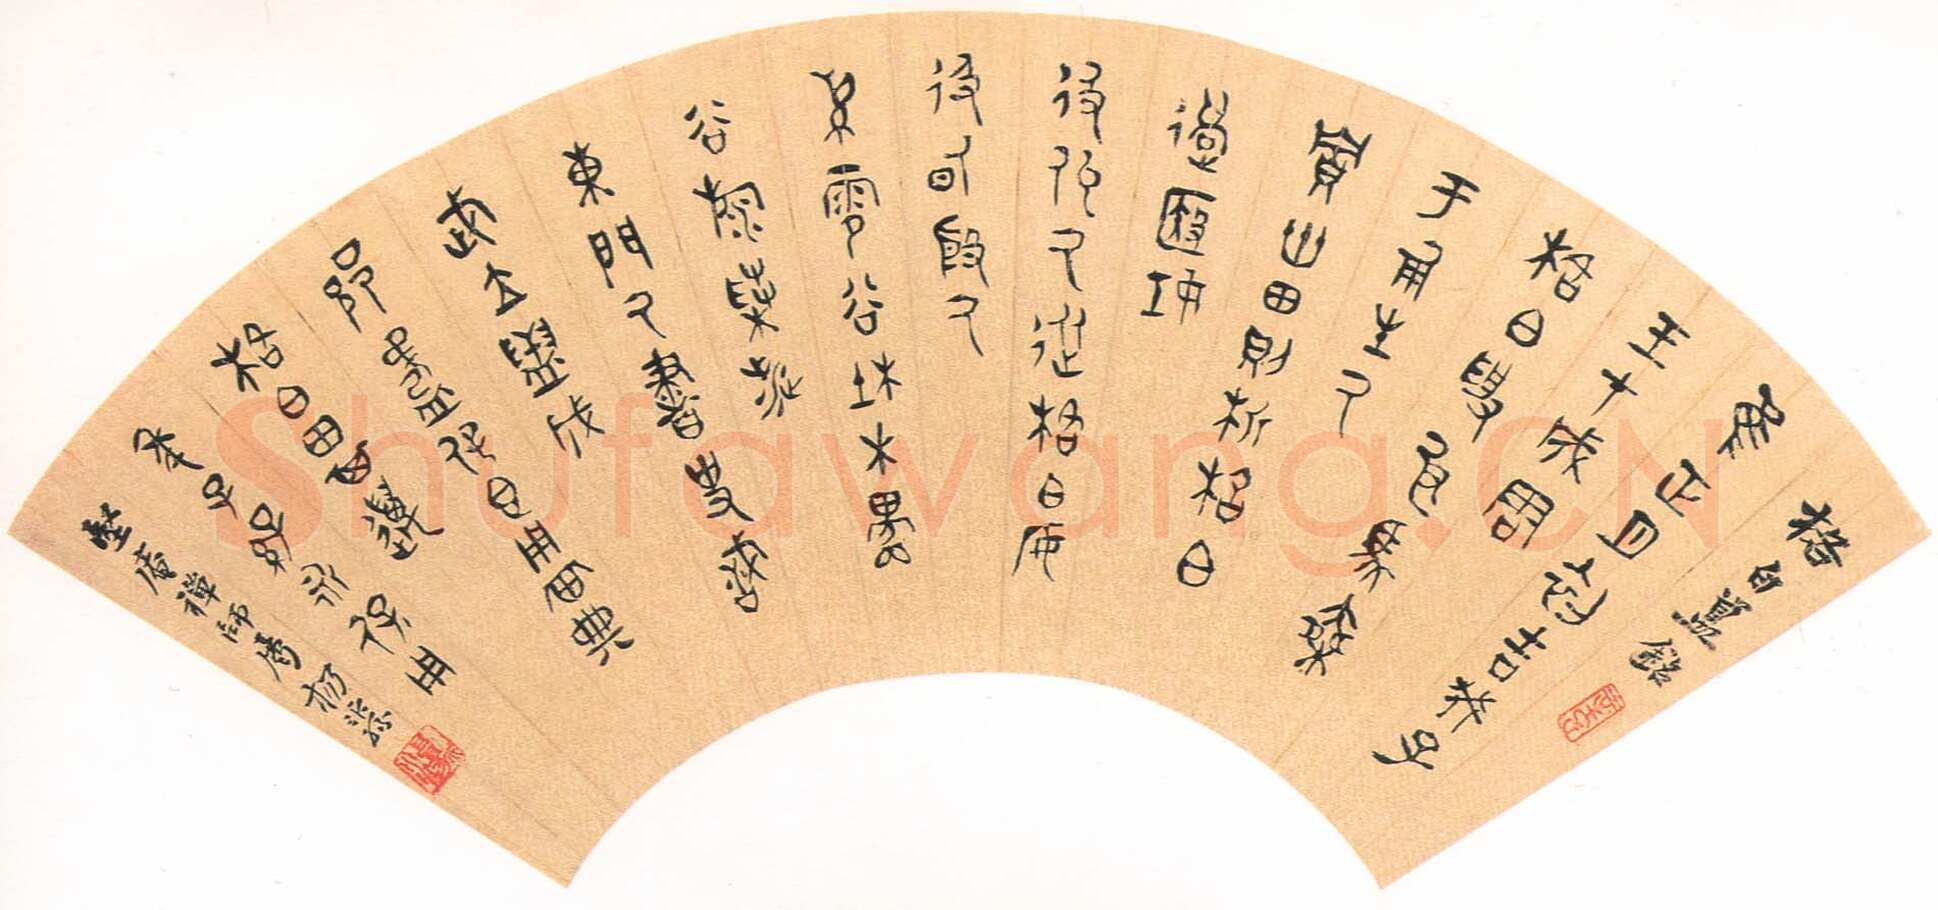 格白簋銘
隹正月初吉癸子
王才成周
格白取良馬乘
于倗生氒
賈卅田則析格白
還殹妊
彶仡氒從格白安
彶甸殷氒
雩谷杜木
谷旅桑涉
東門氒書史戠
武立盟成
鑄保簋用典
格白田其邁
年子子孫孫永保用
庵禪師屬 楊沂孫